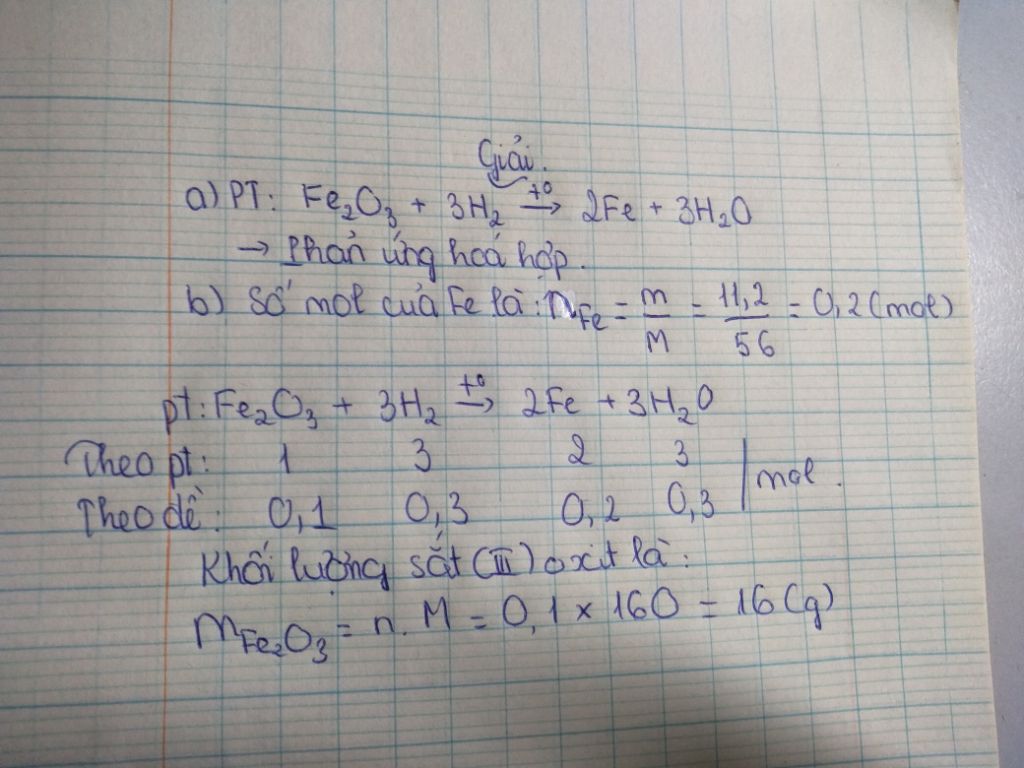 Giải.
a) PT: Fe₂O₃ + 3H₂ →(t⁰) 2Fe + 3H₂O
→ Phản ứng hoá hợp.
b) Số mol của Fe là: nFe = m/M = 11,2/56 = 0,2 (mol)
pt: Fe₂O₃ + 3H₂ →(t⁰) 2Fe + 3H₂O
Theo pt: 1 3 2 3
Theo đề: 0,1 0,3 0,2 0,3 | mol.
Khối lượng sắt (III) oxit là:
mFe₂O₃ = n. M = 0,1 × 160 = 16 (g)